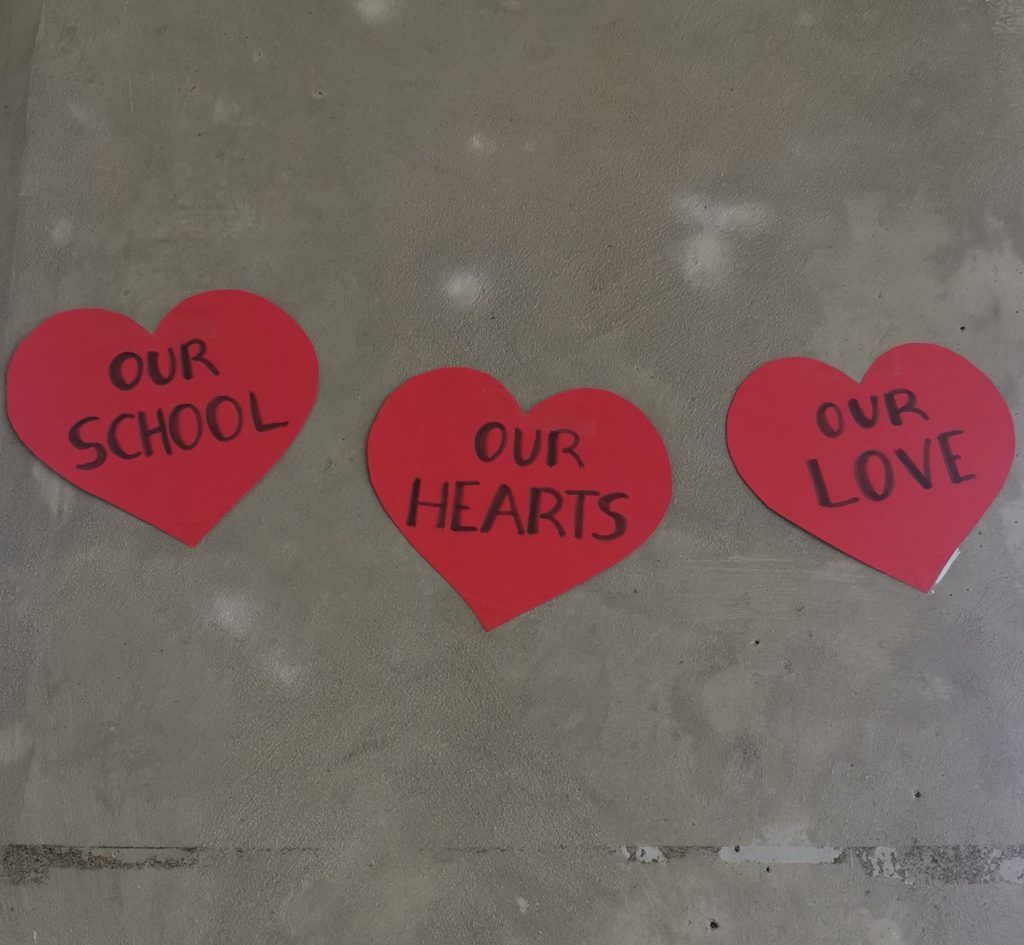 OUR
SCHOOL
OUR
HEARTS
OUR
LOVE